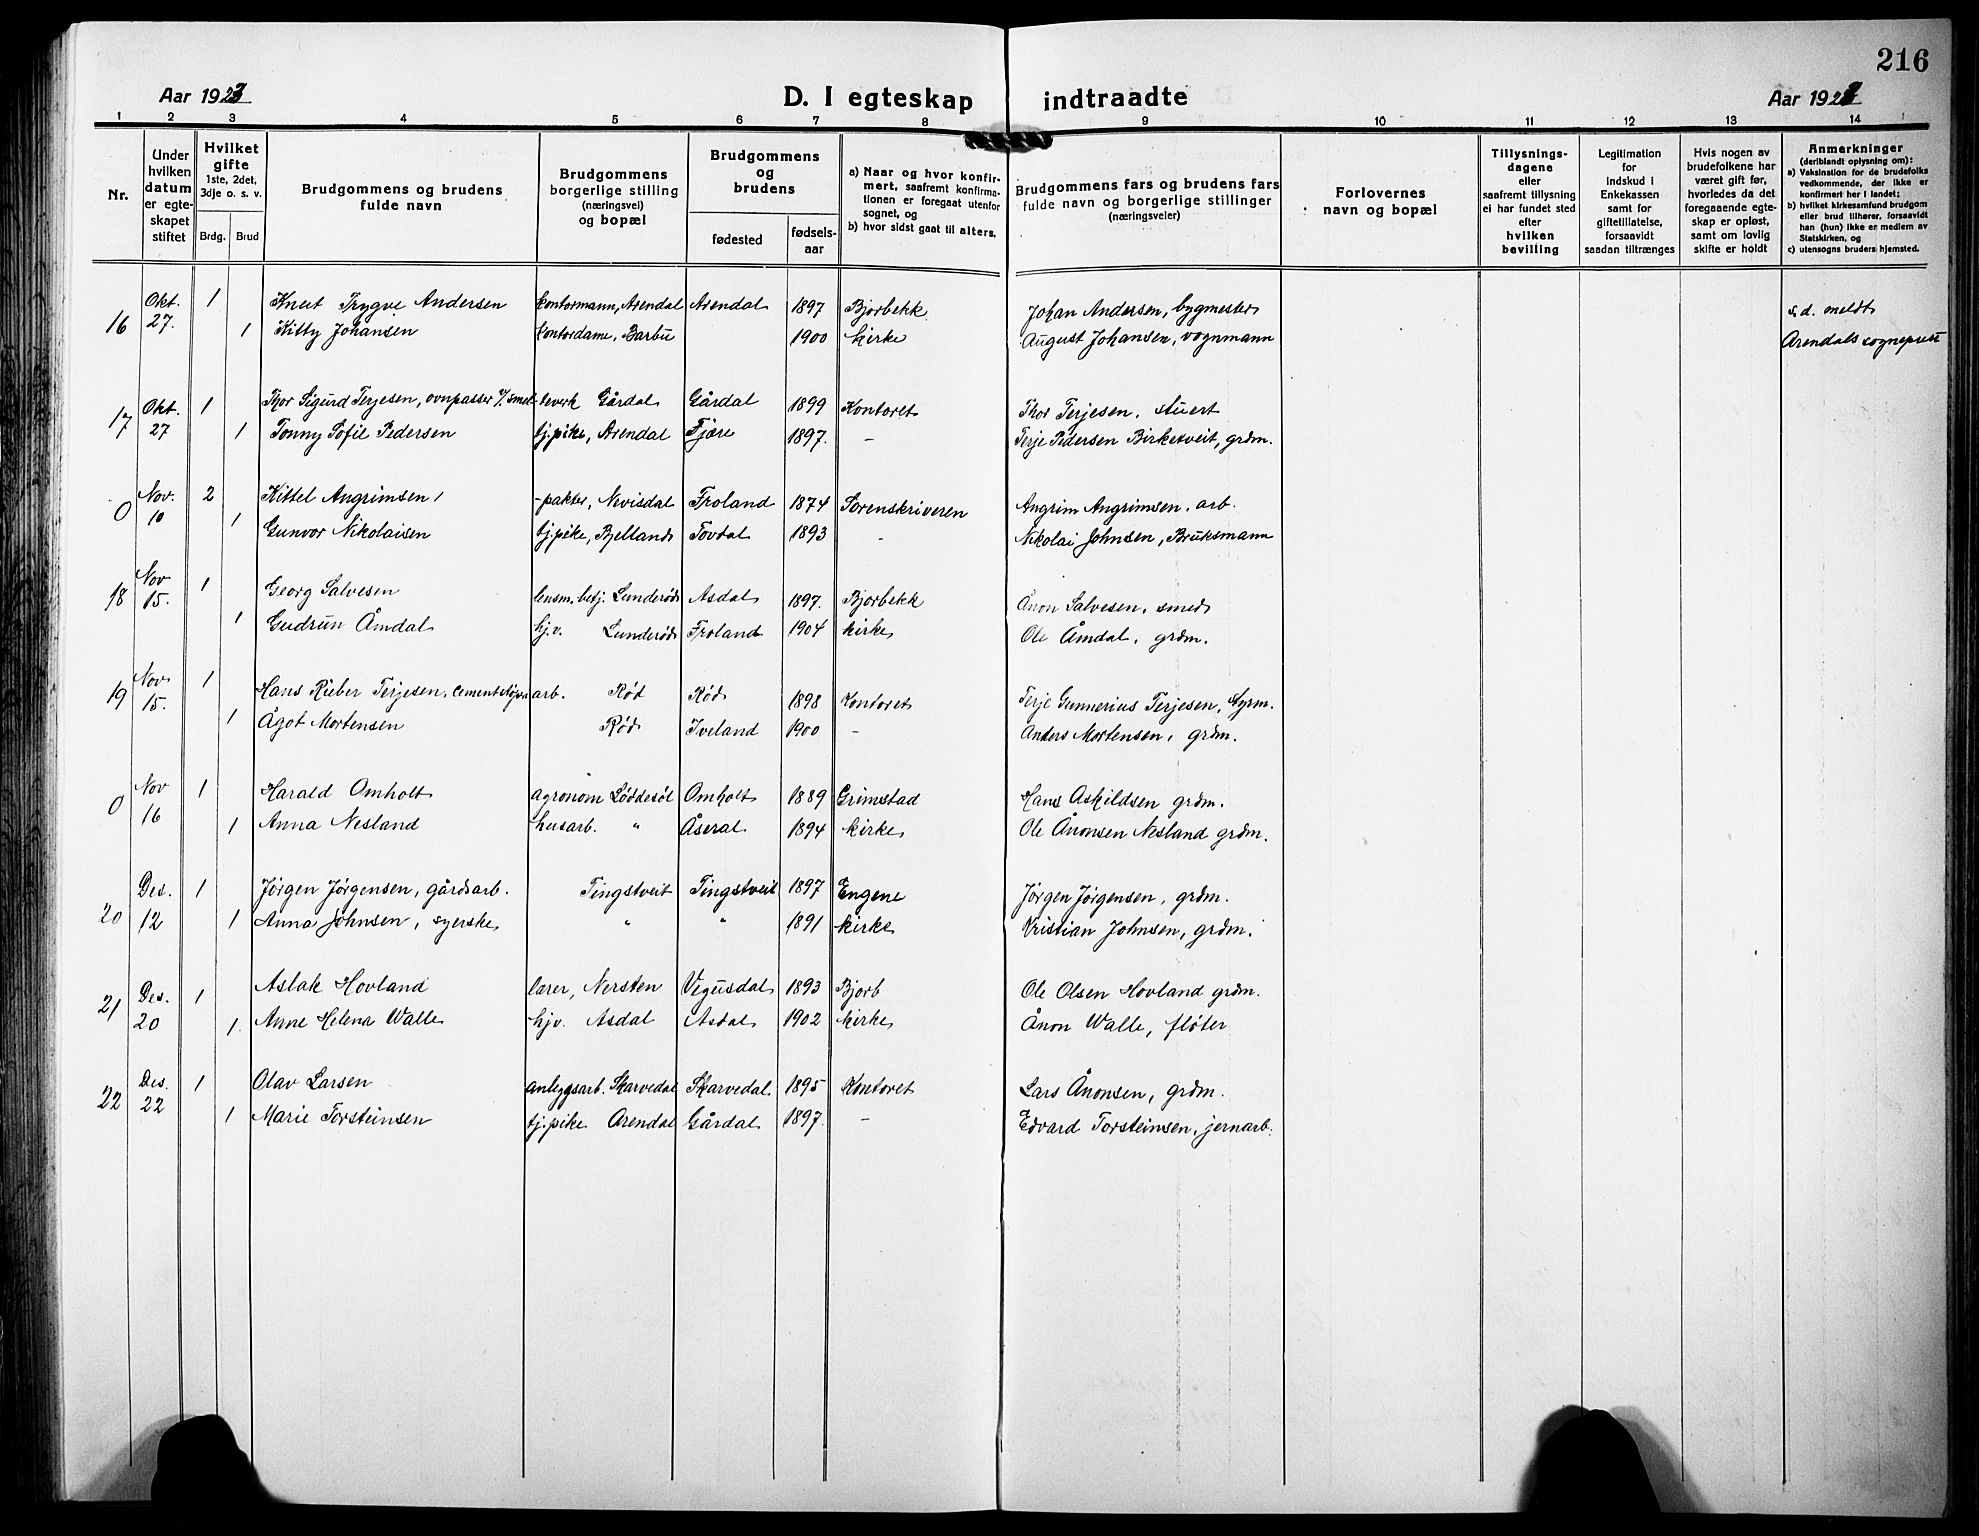 216
Aar 1923
D. I egteskap indtraadte
Aar 192
1 2 3 4 5 6 7 8 9 10 11 12 13 14
Nr.
Under hvilken datum er egteskapet stiftet
Hvilket gifte 1ste, 2det, 3dje o. s. v.
Brdg. Brud
Brudgommens og brudens fulde navn
Brudgommens borgerlige stilling (næringsvei) og bopæl
Brudgommens og brudens
fødested
fødselsaar
a) Naar og hvor konfirmert, saafremt konfirmationen er foregaat utenfor sognet, og
b) hvor sidst gaat til alters.
Brudgommens fars og brudens fars fulde navn og borgerlige stillinger (næringsveier)
Forlovernes navn og bopæl
Tillysningsdagene eller saafremt tillysning ei har fundet sted efter hvilken bevilling
Legitimation for indskud i Enkekassen samt for giftetillatelse, forsaavidt saadan tiltrænges
Hvis nogen av brudefolkene har været gift før, hvorledes da det foregaaende egteskap er opløst, samt om lovlig skifte er holdt
Anmerkninger (deriblandt oplysning om):
a) Vaksination for de brudefolks vedkommende, der ikke er konfirmert her i landet;
b) hvilket kirkesamfund brudgom eller brud tilhører, forsaavidt han (hun) ikke er medlem av Statskirken, og
c) utensogns bruders hjemsted.
16 Okt. 27. 1 Knut Trygve Andersen kontormann, Arendal Arendal 1897 Bjorbekk Johan Andersen, bygmester s.d. meldt
1 Kitty Johansen kontordame, Barbu 1900 kirke August Johansen, vognmann Arendals sogneprest
17 Okt. 27 1 Thor Sigurd Terjesen, ovnpasser v/ smelteverk Gårdal Gårdal 1899 Kontoret Thor Terjesen, stuert
1 Tonny Sofie Pedersen tj.pike, Arendal Fjære 1897. – Terje Pedersen Birketveit, grdm.
0 Nov. 10 2 Kittel Angrimsen, -pakter, Nevisdal Froland 1874 Sorenskriveren Angrim Angrimsen, arb.
1 Gunvor Nikolaisen tj.pike, Bjelland Tovdal 1893 - Nikolai Johnsen, Bruksmann
18 Nov 15. 1 Georg Salvesen lensm.betj. Lunderød Asdal 1897. Bjorbekk Ånon Salvesen, smed
1 Gudrun Åmdal hj.v. Lunderød Froland 1904 kirke Ole Åmdal, grdm.
19 Nov 15. 1 Hans Rieber Terjesen, cementstøperiarb. Rød Rød 1898 Kontoret Terje Gunnerius Terjesen, styrm.
1 Ågot Mortensen Rød Iveland 1900 – Anders Mortensen, grdm.
0 Nov 16 1 Harald Omholt agronom Løddesøl Omholt 1889 Grimstad Hans Askildsen grdm.
1 Anna Nesland husarb. " Åseral 1894 kirke Ole Ånonsen Nesland grdm.
20 Des. 12 1 Jørgen Jørgensen, gårdsarb. Tingstveit Tingstveit 1897 Engene Jørgen Jørgensen, grdm.
1 Anna Johnsen, syerske " " 1891 kirke Kristian Johnsen, grdm.
21 Des. 20 1 Aslak Hovland lærer, Nersten Vegusdal 1893 Bjorb Ole Olsen Hovland grdm.
1. Anne Helena Walle hjv. Asdal Asdal 1902 kirke Ånon Walle, fløter
22 Des. 22 1 Olav Larsen anleggsarb. Skarvedal Skarvedal 1895 Kontoret Lars Ånonsen, grdm.
1 Marie Torsteinsen tj.pike Arendal Gårdal 1897. – Edvard Torsteinsen, jernarb.